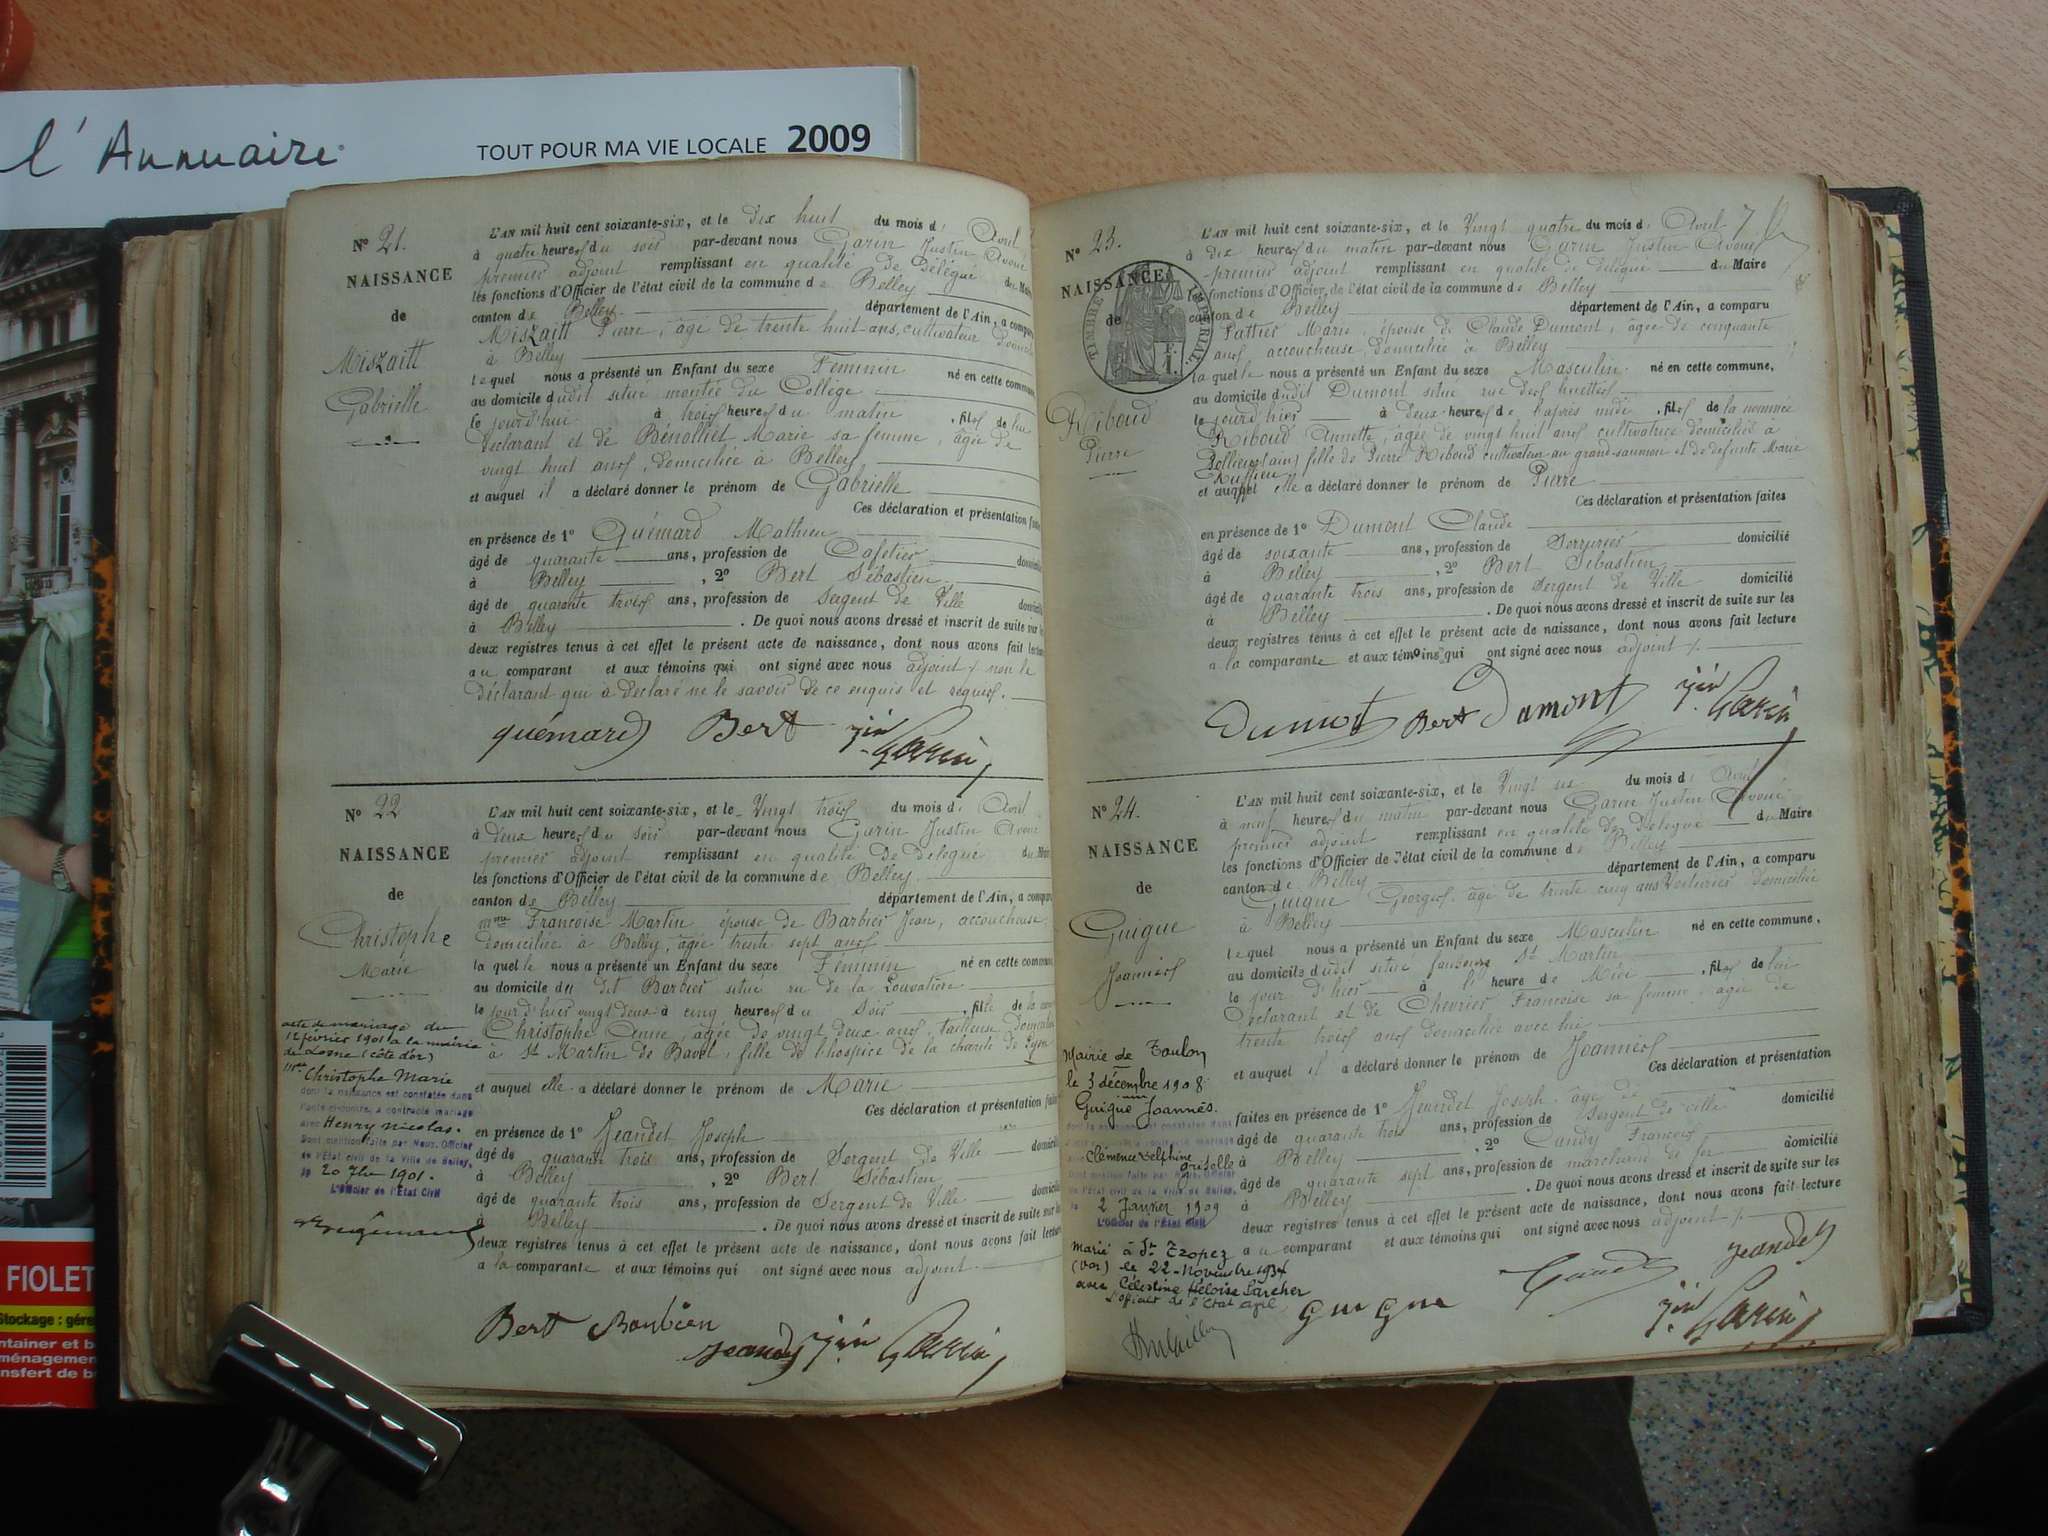 l'Annuaire
TOUT POUR MA VIE LOCALE 2009
N° 21.
NAISSANCE
de
Miszaitt
Gabrielle
L'AN mil huit cent soixante-six, et le dix huit du mois d' Avril
à quatre heures du soir par-devant nous Garin Justin Avoué
premier adjoint remplissant en qualité de délégué du Maire
les fonctions d'Officier de l'état civil de la commune de Belley
canton de Belley département de l'Ain, a comparu
Miszaitt Pierre, âgé de trente huit ans, cultivateur
à Belley
lequel nous a présenté un Enfant du sexe Féminin né en cette commune
au domicile dudit situé montée du Collège
le jourd'hui à trois heures du matin, fils de lui
déclarant et de Bénolliet Marie sa femme, âgée de
vingt huit ans, domiciliée à Belley
et auquel il a déclaré donner le prénom de Gabrielle
Ces déclaration et présentation faites
en présence de 1° Quémard Mathieu
âgé de quarante ans, profession de Cafetier domicilié
à Belley, 2° Bert Sébastien
âgé de quarante trois ans, profession de Sergent de Ville domicilié
à Belley. De quoi nous avons dressé et inscrit de suite sur les
deux registres tenus à cet effet le présent acte de naissance, dont nous avons fait lecture
au comparant et aux témoins qui ont signé avec nous adjoint / non le
déclarant qui à déclaré ne le savoir de ce enquis et requis.
quémard Bert Garin
N° 22
NAISSANCE
de
Christophe
Marie
L'AN mil huit cent soixante-six, et le Vingt trois du mois d' Avril
à deux heures du soir par-devant nous Garin Justin Avoué
premier adjoint remplissant en qualité de délégué du Maire
les fonctions d'Officier de l'état civil de la commune de Belley
canton de Belley département de l'Ain, a comparu
mme Françoise Martin épouse de Barbier Jean, accoucheuse
domiciliée à Belley, âgée trente sept ans
laquelle nous a présenté un Enfant du sexe Féminin né en cette commune
au domicile du dit Barbier situé ru de la Louvatière
le jour d'hier vingt deux à cinq heures du soir, fille de la
Christophe Anne, âgée de vingt deux ans, tailleuse
à St Martin de Bavel, fille de l'hospice de la charité de Lyon
et auquel elle a déclaré donner le prénom de Marie
Ces déclaration et présentation faites
en présence de 1° Jeandet Joseph
âgé de quarante trois ans, profession de Sergent de Ville domicilié
à Belley, 2° Bert Sébastien
âgé de quarante trois ans, profession de Sergent de Ville domicilié
à Belley. De quoi nous avons dressé et inscrit de suite sur les
deux registres tenus à cet effet le présent acte de naissance, dont nous avons fait lecture
a la comparante et aux témoins qui ont signé avec nous adjoint
Bert Jeandet Garin
acte de mariage du
12 février 1901 a la mairie
de Losne (côte d'or)
Christophe Marie
dont la naissance est constatée dans
l'acte ci-contre, a contracté mariage
avec Henry Nicolas.
Dont mention faite par Nous, Officier
de l'État civil de la Ville de Belley,
le 20 1901.
L'Officier de l'État Civil
N° 23.
NAISSANCE
de
Riboud
Pierre
TIMBRE IMPERIAL
1 F.
L'AN mil huit cent soixante-six, et le Vingt quatre du mois d' Avril
à dix heures du matin par-devant nous Garin Justin Avoué
premier adjoint remplissant en qualité de délégué du Maire
les fonctions d'Officier de l'état civil de la commune de Belley
canton de Belley département de l'Ain, a comparu
Marie, épouse de Claude Dumont, âgée de cinquante
ans, accoucheuse, domiciliée à Belley
laquelle nous a présenté un Enfant du sexe Masculin né en cette commune,
au domicile dudit Dumont situé rue des
le jourd'hier à deux heures de l'après midi, fils de la nommée
Riboud Annette, âgée de vingt huit ans cultivatrice domiciliée à
Pollieu (ain) fille de Pierre Riboud cultivateur au grand-saumon et de défunte Marie
Ruffieu
et auquel elle a déclaré donner le prénom de Pierre
Ces déclaration et présentation faites
en présence de 1° Dumont Claude
âgé de soixante ans, profession de Serrurier domicilié
à Belley, 2° Bert Sébastien
âgé de quarante trois ans, profession de Sergent de Ville domicilié
à Belley. De quoi nous avons dressé et inscrit de suite sur les
deux registres tenus à cet effet le présent acte de naissance, dont nous avons fait lecture
a la comparante et aux témoins qui ont signé avec nous adjoint /.
Dumont Bert Dumont Garin
N° 24.
NAISSANCE
de
Guigue
Joannès
L'AN mil huit cent soixante-six, et le Vingt six du mois d' Avril
à neuf heures du matin par-devant nous Garin Justin Avoué
premier adjoint remplissant en qualité de délégué du Maire
les fonctions d'Officier de l'état civil de la commune de Belley
canton de Belley département de l'Ain, a comparu
Guigue Georges, âgé de trente cinq ans Voiturier domicilié
à Belley
lequel nous a présenté un Enfant du sexe Masculin né en cette commune,
au domicile dudit situé faubourg St Martin
le jour d'hier à l' heure de Midi, fils de lui
déclarant et de Chevrier Françoise sa femme, âgée de
trente trois ans domiciliée avec lui
et auquel il a déclaré donner le prénom de Joannès
Ces déclaration et présentation
faites en présence de 1° Jeandet Joseph, âgé de
âgé de quarante trois ans, profession de Sergent de ville domicilié
à Belley, 2° Candy François domicilié
âgé de quarante sept ans, profession de marchand de fer
à Belley. De quoi nous avons dressé et inscrit de suite sur les
deux registres tenus à cet effet le présent acte de naissance, dont nous avons fait lecture
au comparant et aux témoins qui ont signé avec nous adjoint /.
Guigue Jeandet Garin
Mairie de Toulon
le 3 décembre 1908.
Guigue Joannès.
Clémence Delphine
Griselle
2 Janvier 1909
L'Officier de l'État Civil
Marié à St Tropez
(Var) le 22 Novembre 1934
avec Célestine Héloïse Larcher
L'officier de l'Etat civil
FIOLET
Stockage : gére
ntainer et b
ménagemen
nsfert de b